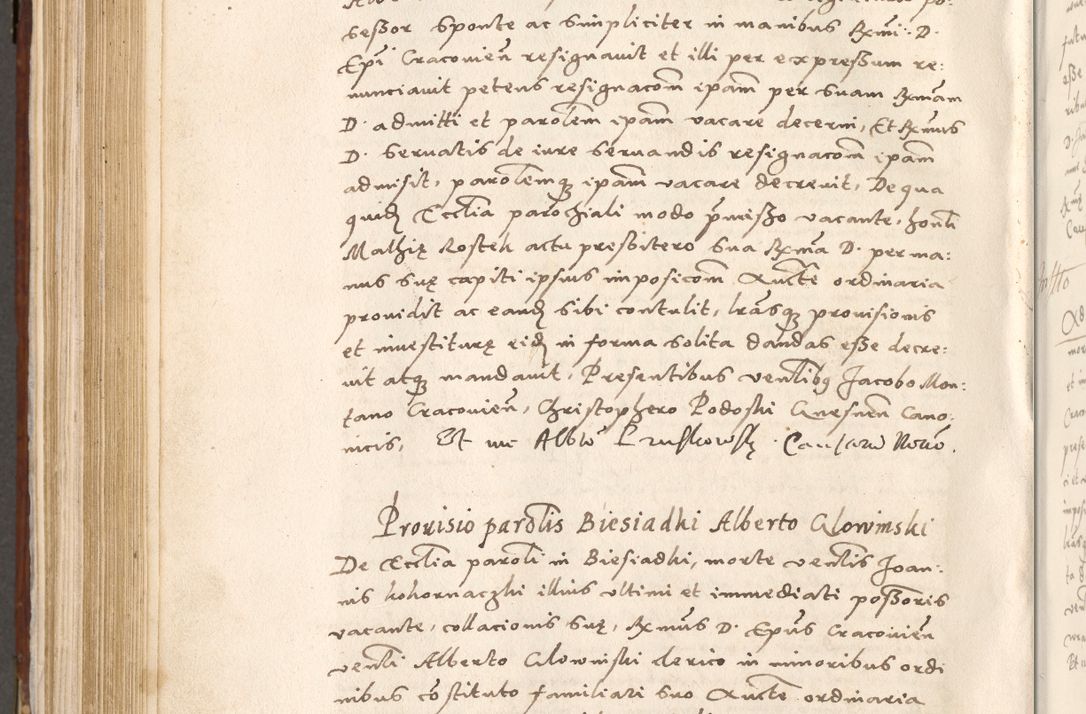 seßor sponte ac simpliciter in manibus Rxmi: D.
Epi Cracovien̄ resignavit et illi per expressum re:
nunciavit petens resignacōm ipam per suam Rxmam
D. admitti et parolem ipam vacare decerni, Et Rxmus
D. servatis de iure servandis resignacōm ipam
admisit, parolemq̨ ipam vacare decrevit, De qua
quidē Ecclia parochiali modo p̄misso vacante, honli
Mathię Rostek actu presbitero sua Rxma D. per ma:
nus suę capiti ipsius imposicōm Aucte ordinaria
providit ac eandē sibi contulit, lrasq̨ provisionis
et investiturę eidē in forma solita dandas eße decre:
vit atq̨ mandavit, Presentibus venlibq̨ Jacobo Mon:
tano Cracovien̄, Christophero Podoski Gnesnen̄ Cano:
nicis, Et me Albto Cancera Notō.
Provisio parolis Biesiadki Alberto Glowinski
De Ecclia paroli in Biesiadki, morte venlis Joan:
nis kokornaczki illius ultimi et immediati poßoris
vacante, collacionis suę, Rxmus D. Epus Cracovien̄
venli Alberto Glowinski clerico in minoribus ordi
nibus cōstituto familiari suo Aucte ordinaria